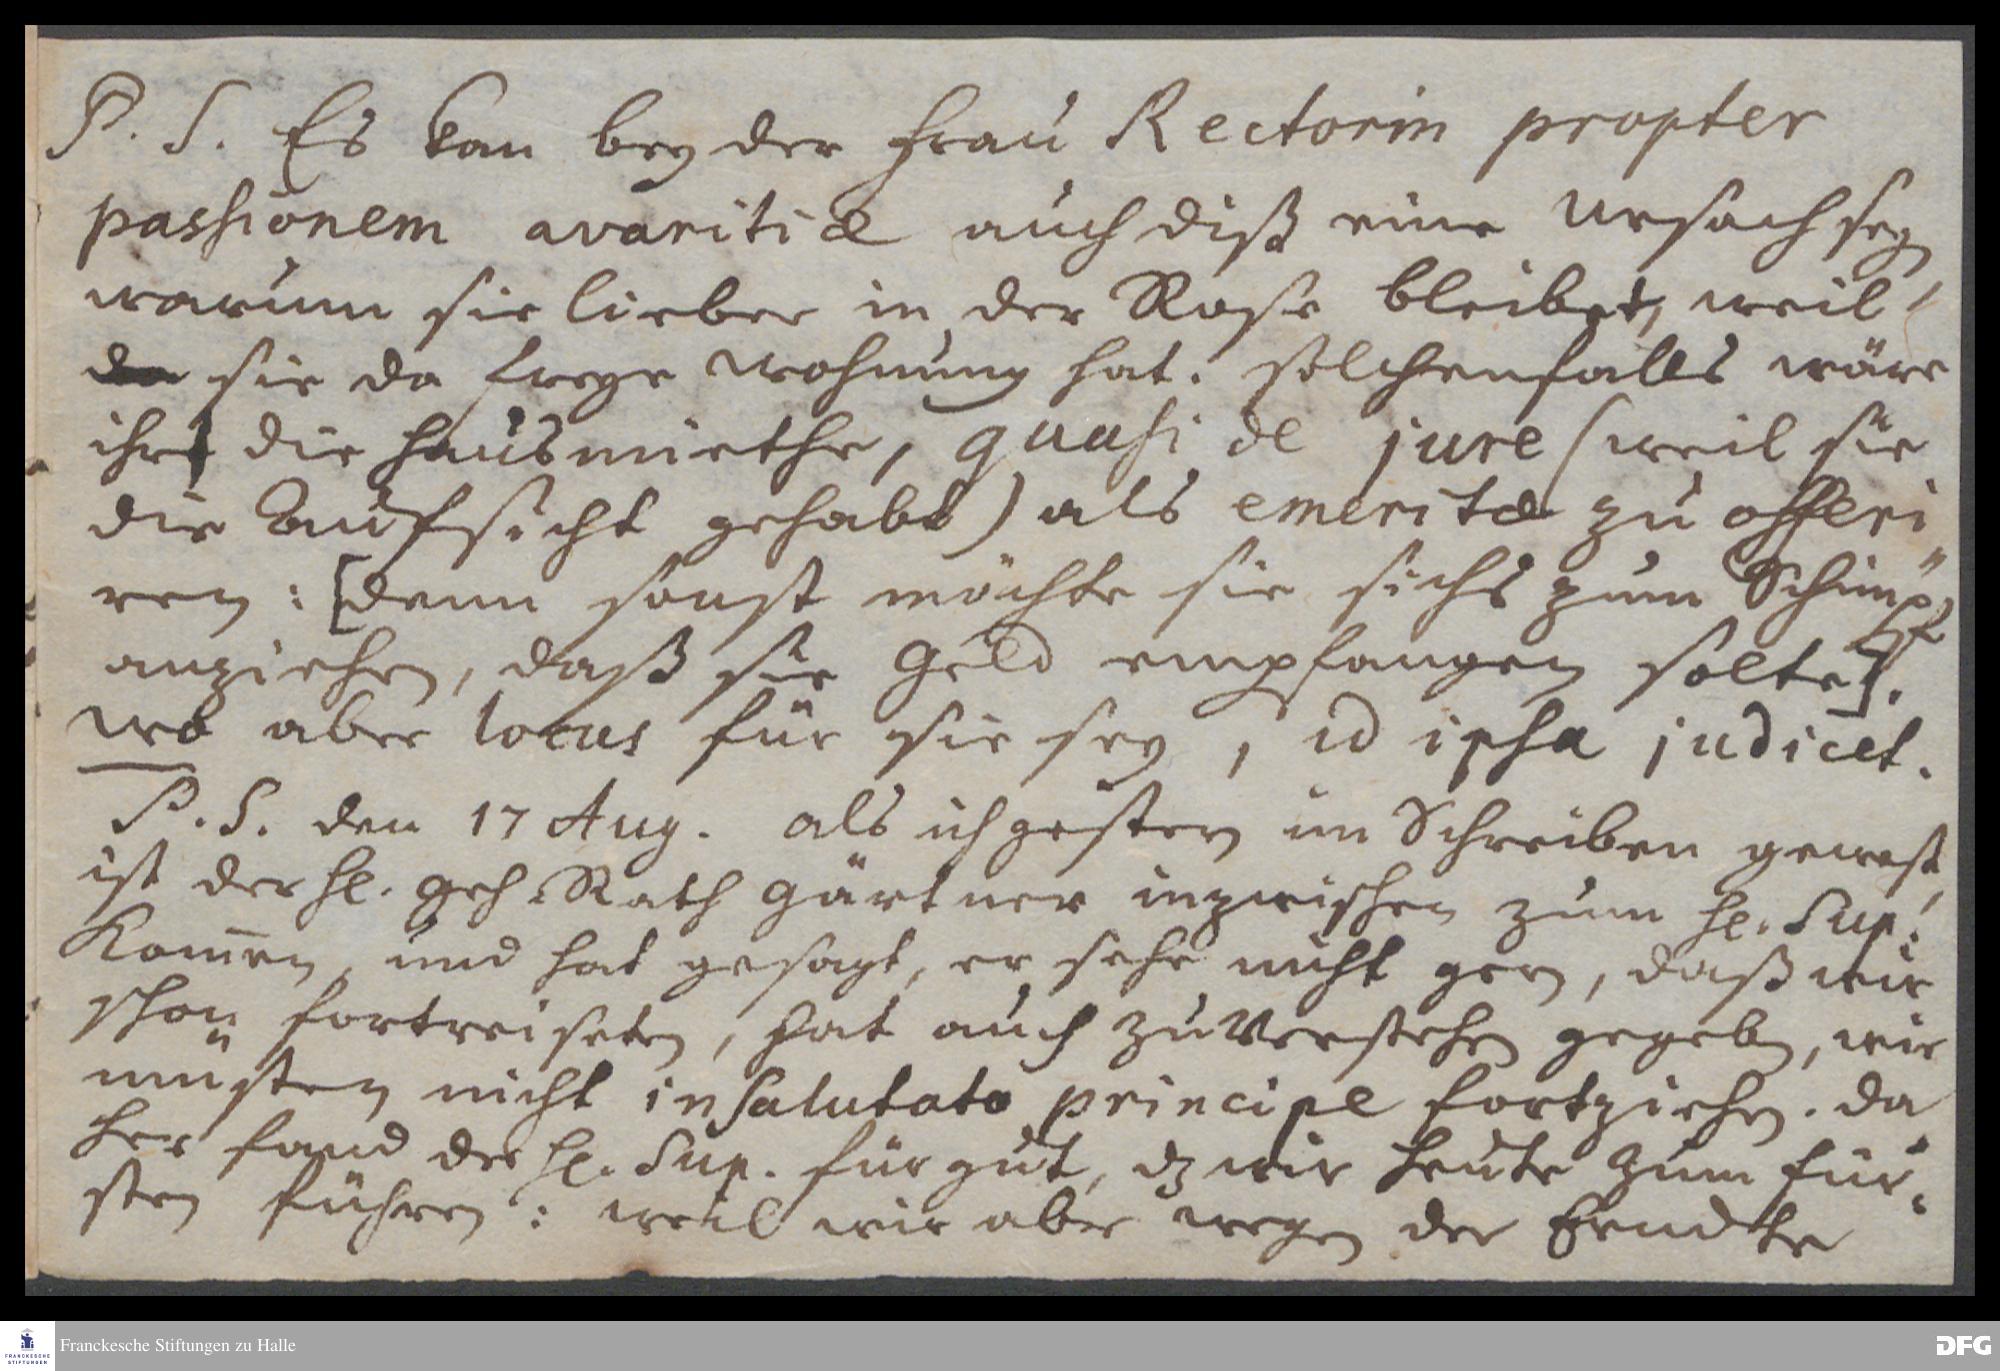 P. S. Es kan bey der Frau Rectorin propter
passionem avaritiæ auch diß eine Ursach sey
warum sie lieber in der Rose bleibet, weil
da sie da freye wohnung hat. solchenfalls wäre
ihr die Hausmiethe, quasi de jure (weil sie
die Aufsicht gehabt) als emeritæ zu offeri
ren: [denn sonst möchte sie sichs zum Schimpf
anziehen, daß sie Geld empfangen solte].
wo aber locus für sie sey, id ipsa judicet.
P. S. den 17 Aug. als ich gestern im Schreiben gewest,
ist der H. Geh. Rath Gärtner inzwischen zum H. Sup.
kom̄en, und hat gesagt, er sehe nicht gern, daß wir
schon fortreiseten, hat auch zuverstehen gegeben, wir
müsten nicht insalutato principe fortziehen. Da
her fand der H. Sup. für gut, dz wir heute zum Für-
sten führen: weil wir aber wegen der Erndte
Franckesche Stiftungen zu Halle
FRANCKESCHE
STIFTUNGEN
DFG